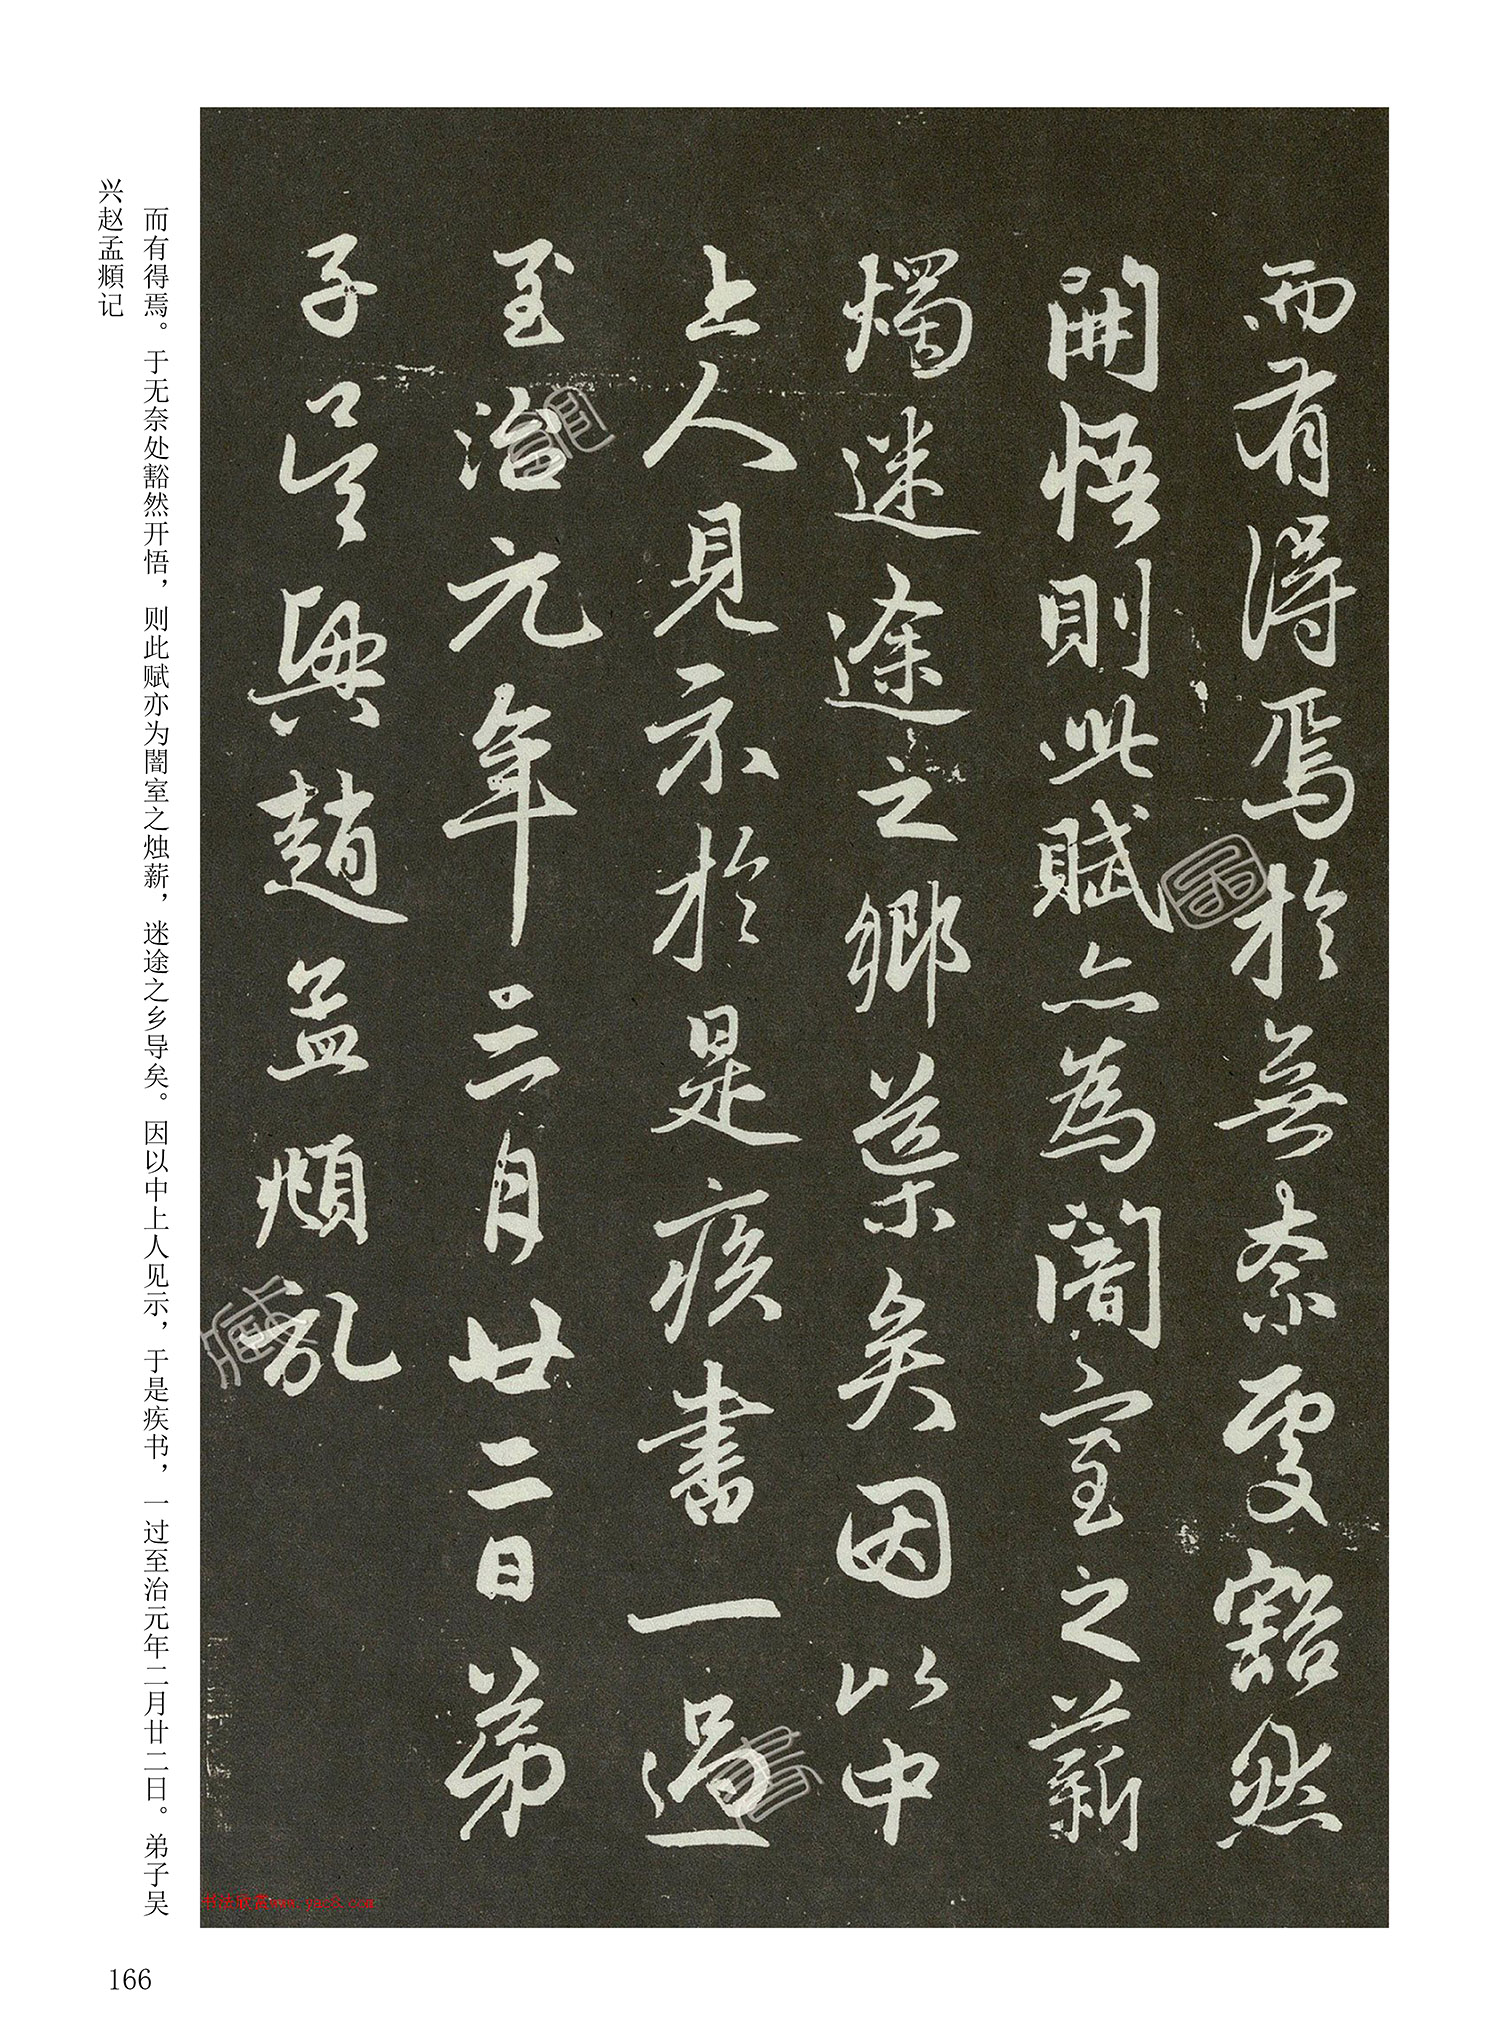 而有得焉於無奈處豁然
開悟則此賦亦為闇室之薪
燭迷途之鄉導矣因以中
上人見示於是疾書一過
至治元年三月廿二日弟
子吳興趙孟頫記
而有得焉。于无奈处豁然开悟，则此赋亦为闇室之烛薪，迷途之乡导矣。因以中上人见示，于是疾书，一过至治元年二月廿二日。弟子吴
兴赵孟頫记
166
书法欣赏www.yac8.com